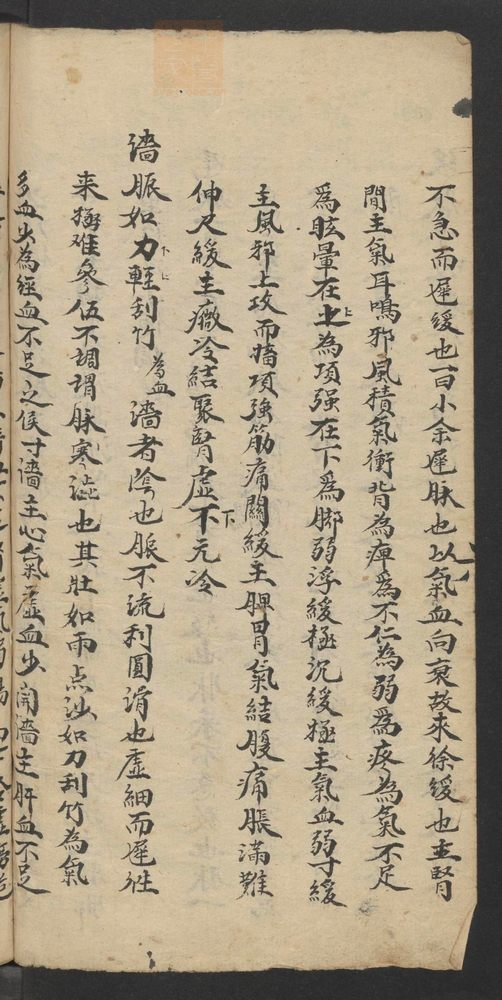 不急而遲緩也一曰小余遲脉也以氣血向衰故來徐緩也主腎
間主氣耳鳴邪風積氣衝背為痺為不仁為弱為疼為氣不足
為眩暈在上為項强在下為脚弱浮緩極沉緩極主氣血弱寸緩
主風邪上攻而猪項強筋痛關緩主脾胃氣結腹痛脹滿難
伸尺緩主癥冷結聚腎虛下元冷
濇脈如刀輕刮竹為血濇者陰也脈不流利圓滑也虛細而遲往
来極难參伍不調謂脉寒澁也其壯如雨点沙如刀刮竹為氣
多血少為經血不足之候寸濇主心氣虛血少関濇主肝血不足